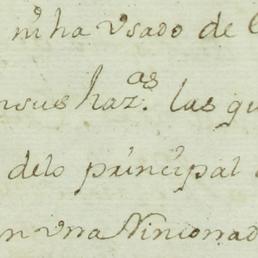 ni ha vsado de
ensus haz.as las qu
delo principal
en vna Rinconad